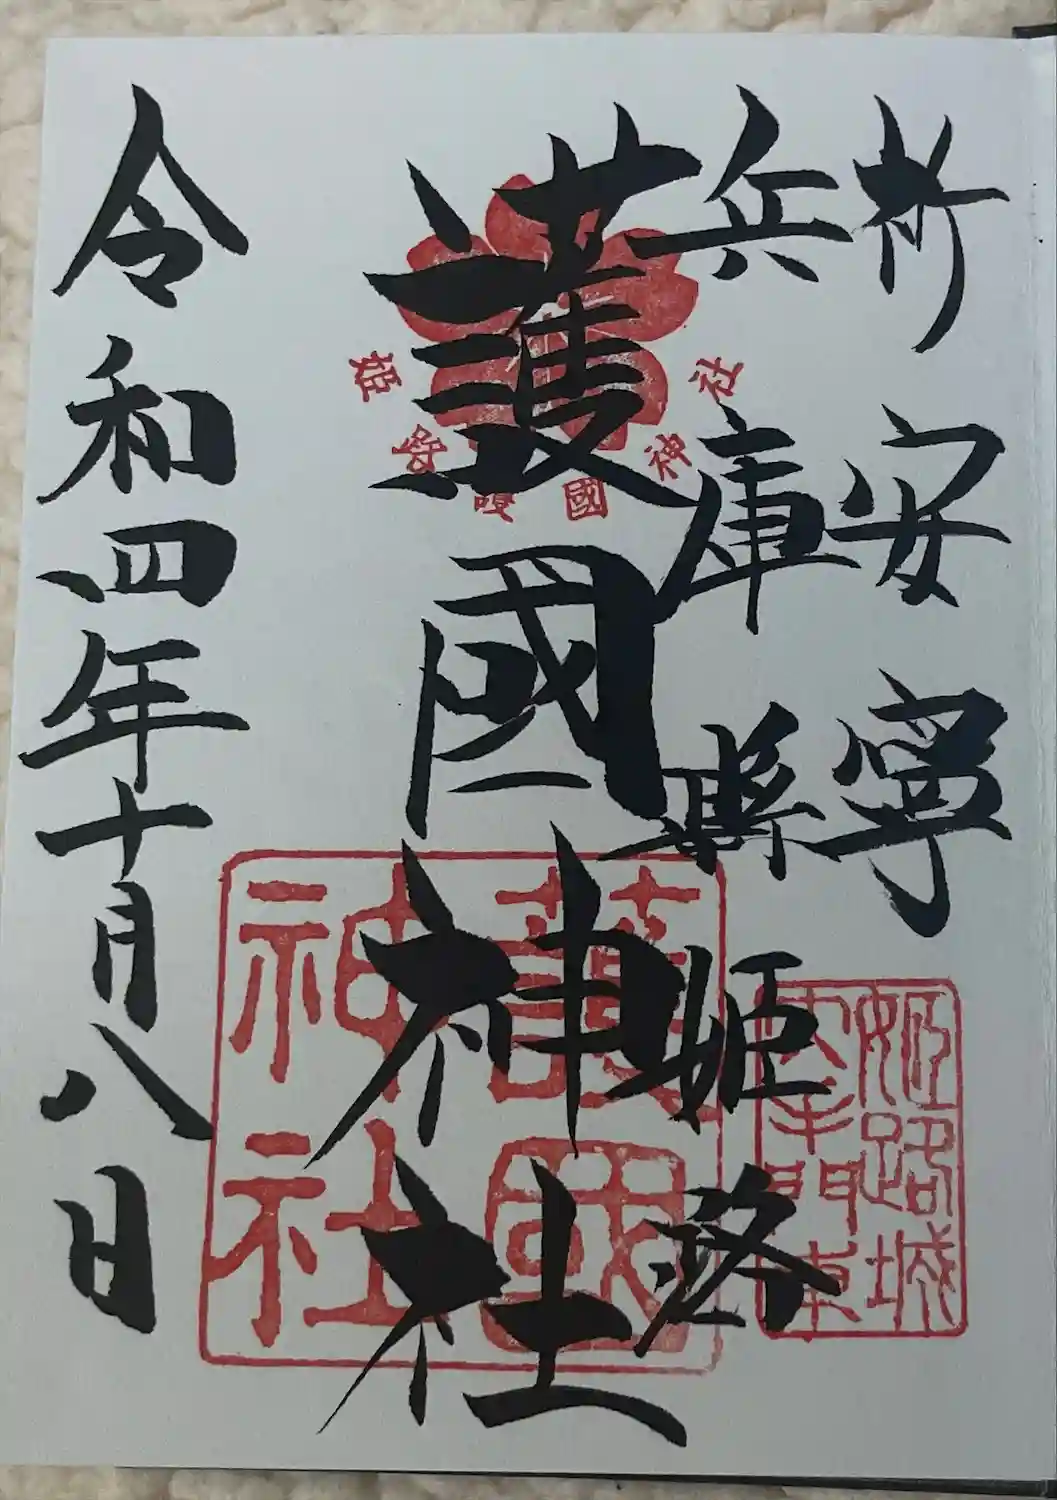 祈安寧
兵庫縣姫路
護國神社
令和四年十月八日
姫路護國神社
護國神社
姫路城大手門東